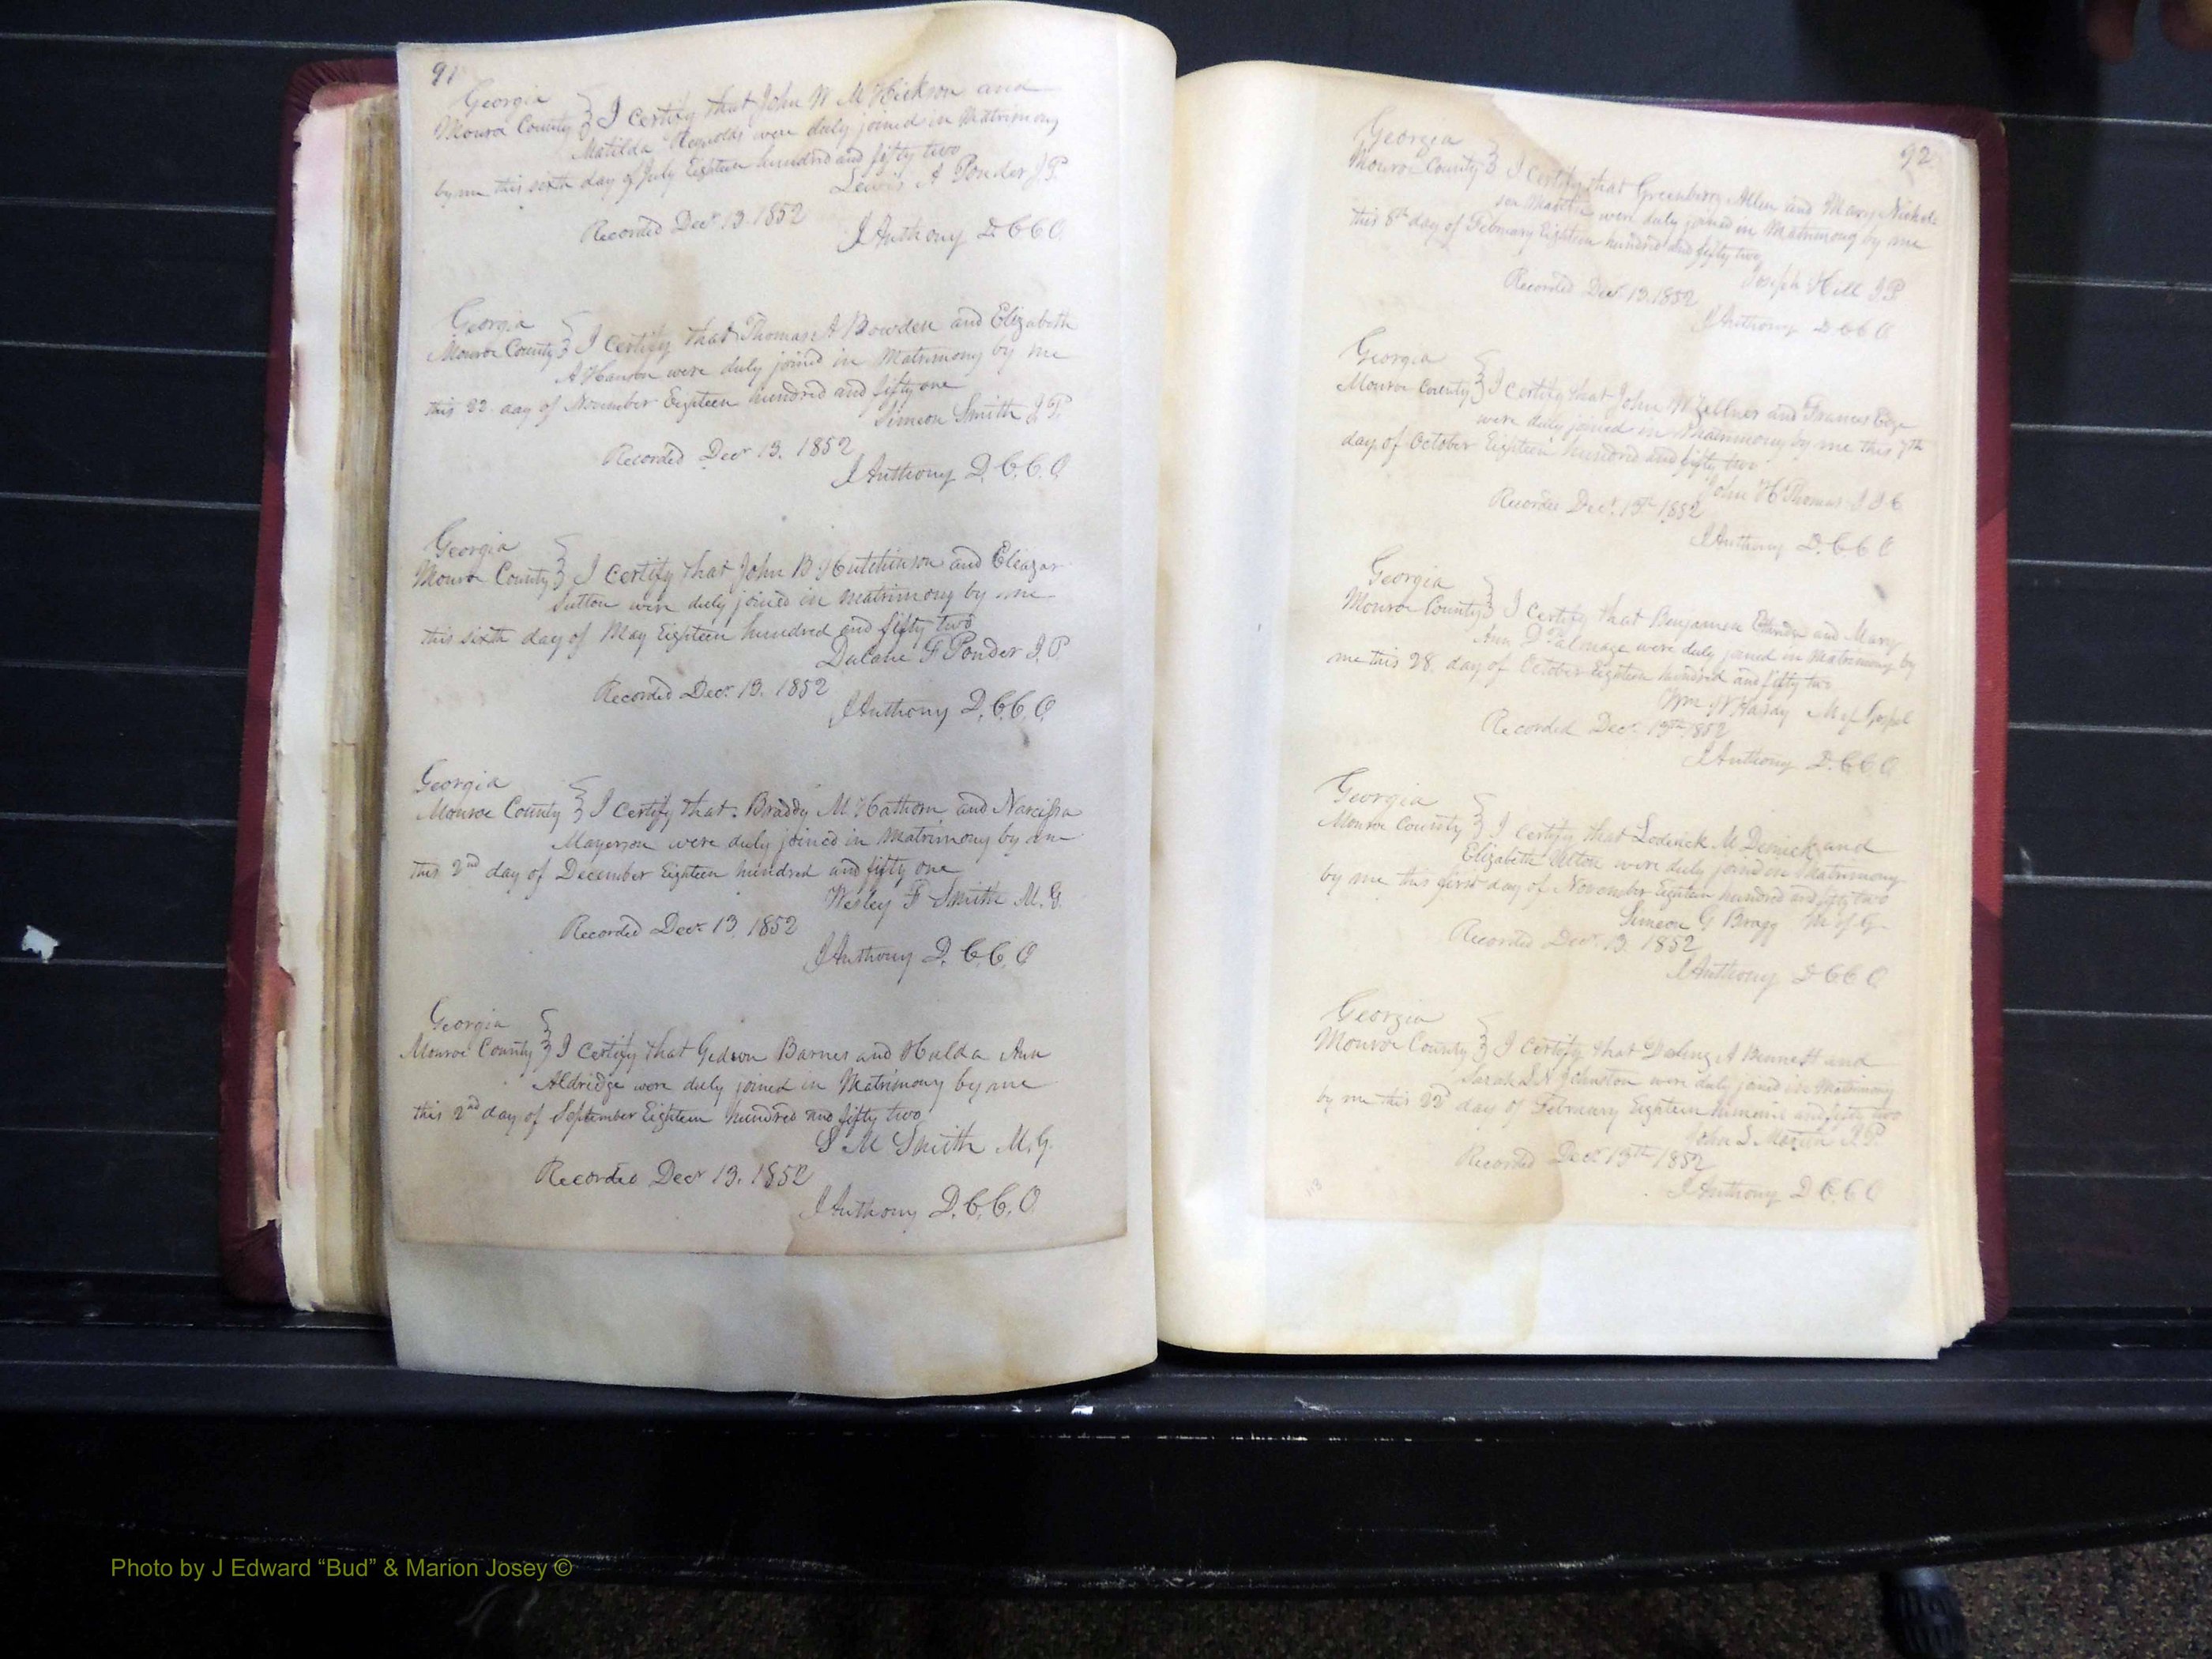 91
Georgia
Monroe County } I certify that John W M Hickson and
Matilda Reynolds were duly joined in Matrimony
by me this sixth day of July Eighteen hundred and fifty two
Lewis A Ponder J.P.
Recorded Decr 13. 1852
J Anthony D C C O.
Georgia
Monroe County } I certify that Thomas A Bowden and Elizabeth
A Hanson were duly joined in Matrimony by me
this 22. day of November Eighteen hundred and fifty one
Simeon Smith J.P.
Recorded Decr 13. 1852
J Anthony D. C. C. O.
Georgia
Monroe County } I certify that John B Hutchinson and Eleazar
Sutton were duly joined in Matrimony by me
this sixth day of May Eighteen hundred and fifty two
Ponder J.P.
Recorded Decr 13. 1852
J Anthony D. C. C. O.
Georgia
Monroe County } I certify that Braddy M Hathorn and Narcissa
Mayerson were duly joined in Matrimony by me
this 2nd day of December Eighteen hundred and fifty one
Wesley F Smith M.G.
Recorded Decr 13. 1852
J Anthony D. C. C. O
Georgia
Monroe County } I certify that Gideon Barnes and Hulda Ann
Aldridge were duly joined in Matrimony by me
this 2nd day of September Eighteen hundred and fifty two
S M Smith M.G.
Recorded Decr 13. 1852
J Anthony D. C. C. O.
92
Georgia
Monroe County } I certify that Greenberry Allen and Mary Nichol-
son were duly joined in Matrimony by me
this 8th day of February Eighteen hundred and fifty two
Joseph Hill J.P.
Recorded Decr 13. 1852
J Anthony D C C O
Georgia
Monroe County } I certify that John W Zellner and Frances Edge
were duly joined in Matrimony by me this 7th
day of October Eighteen hundred and fifty two
John H Thomas J.I.C
Recorded Decr. 13th 1852
J Anthony D. C C O
Georgia
Monroe County } I certify that Benjamin Ethridge and Mary
Ann D Talmage were duly joined in Matrimony by
me this 28. day of October Eighteen hundred and fifty two
Wm W Hardy M of Gospel
Recorded Decr. 13th 1852
J Anthony D. C C O
Georgia
Monroe County } I certify that Lodrick M and
Elizabeth were duly joined in Matrimony
by me this first day of November Eighteen hundred and fifty two
Simeon G Bragg M of G
Recorded Decr. 13. 1852
J Anthony D C C O.
Georgia
Monroe County } I certify that Darling A Bennett and
Sarah S N Johnston were duly joined in Matrimony
by me this 22d day of February Eighteen hundred and fifty two
John S J.P.
Recorded Decr. 13th 1852
J Anthony D C. C O
113
Photo by J Edward “Bud” & Marion Josey ©